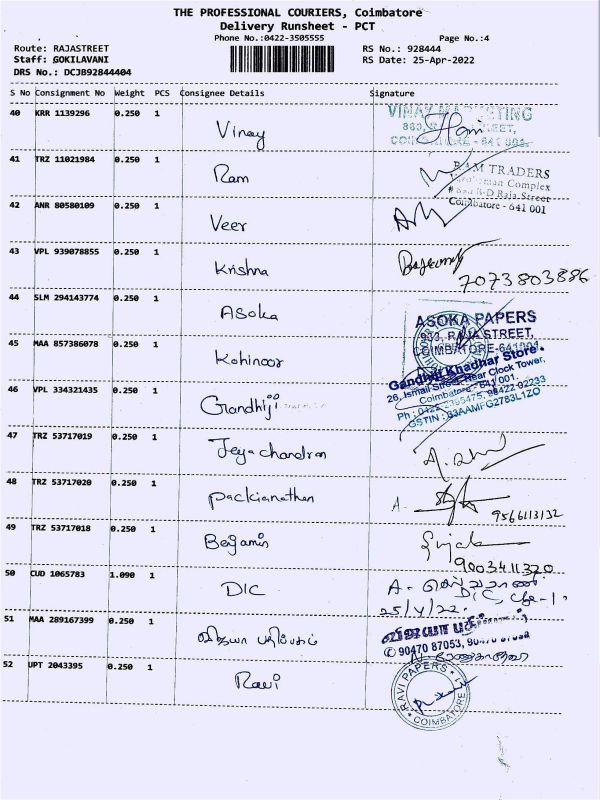 THE PROFESSIONAL COURIERS, Coimbatore
Delivery Runsheet - PCT
Phone No.:0422-3505555
Page No.:4
Route: RAJASTREET
RS No.: 928444
Staff: GOKILAVANI
RS Date: 25-Apr-2022
DRS No.: DCJB92844404
S No Consignment No Weight PCS Consignee Details Signature
40 KRR 1139296 0.250 1 Vinay
VINAY MARKETING
COIMBATORE - 641 001.
41 TRZ 11021984 0.250 1 Ram
RAM TRADERS
Complex
Raja Street
Coimbatore - 641 001
42 ANR 80580109 0.250 1 Veer
43 VPL 939078855 0.250 1 Krishna
7073803886
44 SLM 294143774 0.250 1 Asoka
ASOKA PAPERS
903, RAJA STREET,
COIMBATORE-641001
45 MAA 857386078 0.250 1 Kohinoor
Gandhiji Khadhar Store
26, Ismail Street, Near Clock Tower,
Coimbatore - 641 001.
46 VPL 334321435 0.250 1 Gandhiji
GSTIN : 33AAMFG2783L1ZO
47 TRZ 53717019 0.250 1 Jeyachandran
48 TRZ 53717020 0.250 1 Packianathan
A.
9566113132
49 TRZ 53717018 0.250 1 Benjamin
9003411320
50 CUD 1065783 1.090 1 DIC
A.
DIC, Cbe-1.
25/4/22.
51 MAA 289167399 0.250 1 விஜயா பதிப்பகம்
விஜயா
90470 87053,
52 UPT 2043395 0.250 1 Ravi
RAVI PAPERS
COIMBATORE